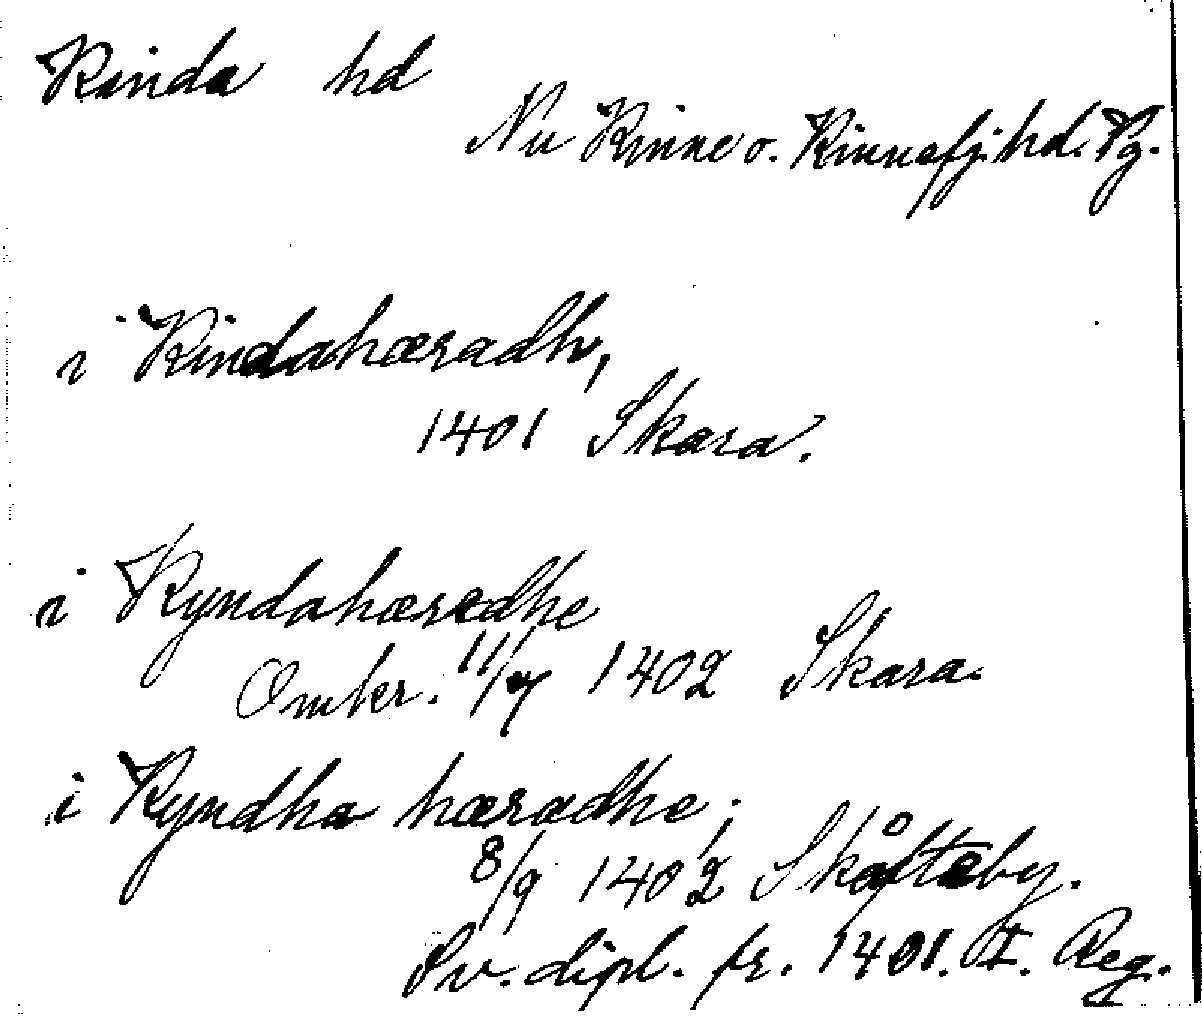 Kinda hd
Nu Kinne o. Kinnefj. hd. Vg.
i Kindahæradh,
1401 Skara.
i Kyndahæredhe
Omkr. 11/7 1402 Skara.
i Kyndha hæradhe;
8/9 1402 Skåfteby.
Sv. dipl. fr. 1401. I. Reg.